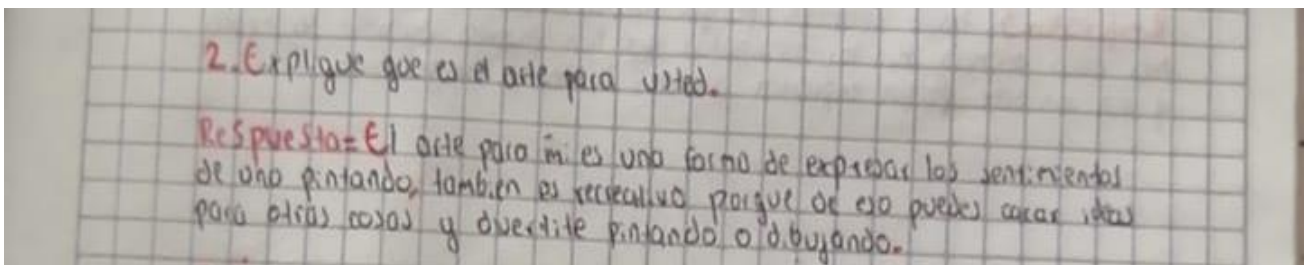 2. Explique que es el arte para usted.
Respuesta= El arte para mi es una forma de expresar los sentimientos
de uno pintando, tambien es recreativo porque de eso puedes cacar ideas
para otras cosas y divertite pintando o dibujando.